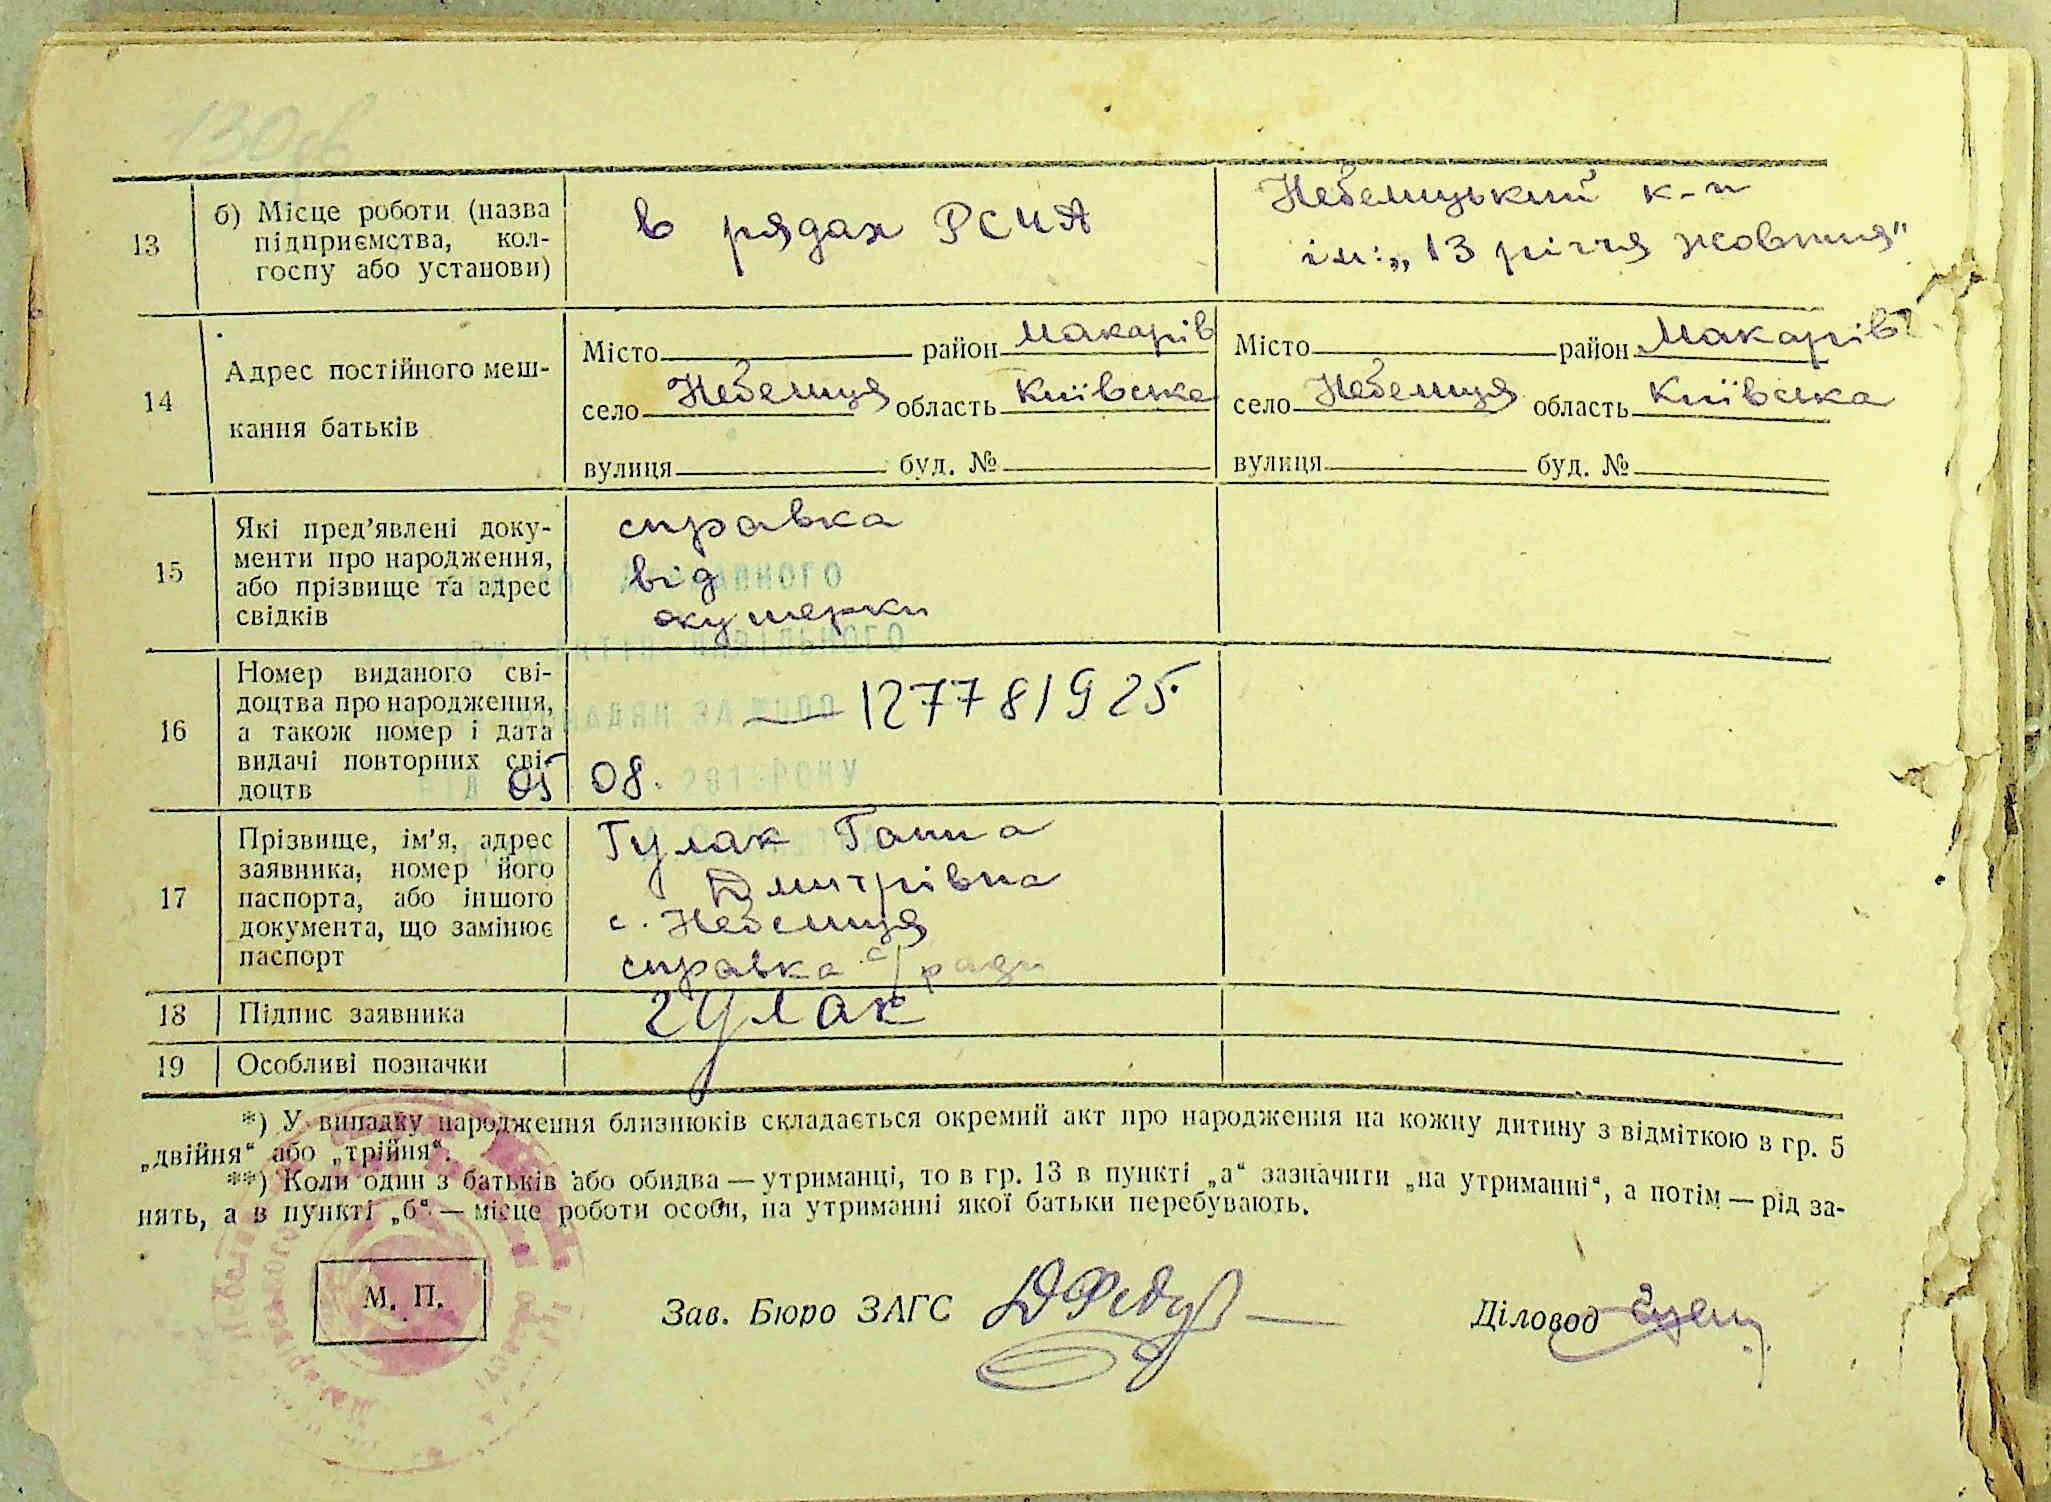 130 об
13
б) Місце роботи (назва
підприємства, кол-
госпу або установи)
в рядах РСЧА
Небелицький к-п
ім: „13 річчя жовтня"
14
Адрес постійного меш-
кання батьків
Місто район Макарів
село Небелиця область Київська
вулиця буд. №
Місто район Макарів
село Небелиця область Київська
вулиця буд. №
15
Які пред'явлені доку-
менти про народження,
або прізвище та адрес
свідків
справка
від
окушерки
16
Номер виданого сві-
доцтва про народження,
а також номер і дата
видачі повторних сві-
доцтв
— 127781925.
05 08.
17
Прізвище, ім'я, адрес
заявника, номер його
паспорта, або іншого
документа, що замінює
паспорт
Гулак Ганна
Дмитрівна
с. Небелиця
справка с/ради
18
Підпис заявника
гулак
19
Особливі позначки
*) У випадку народження близнюків складається окремий акт про народження на кожну дитину з відміткою в гр. 5
„двійня“ або „трійня“.
**) Коли один з батьків або обидва — утриманці, то в гр. 13 в пункті „а“ зазначити „на утриманні“, а потім — рід за-
нять, а в пункті „б“ — місце роботи особи, на утриманні якої батьки перебувають.
М. П.
Зав. Бюро ЗАГС
Діловод